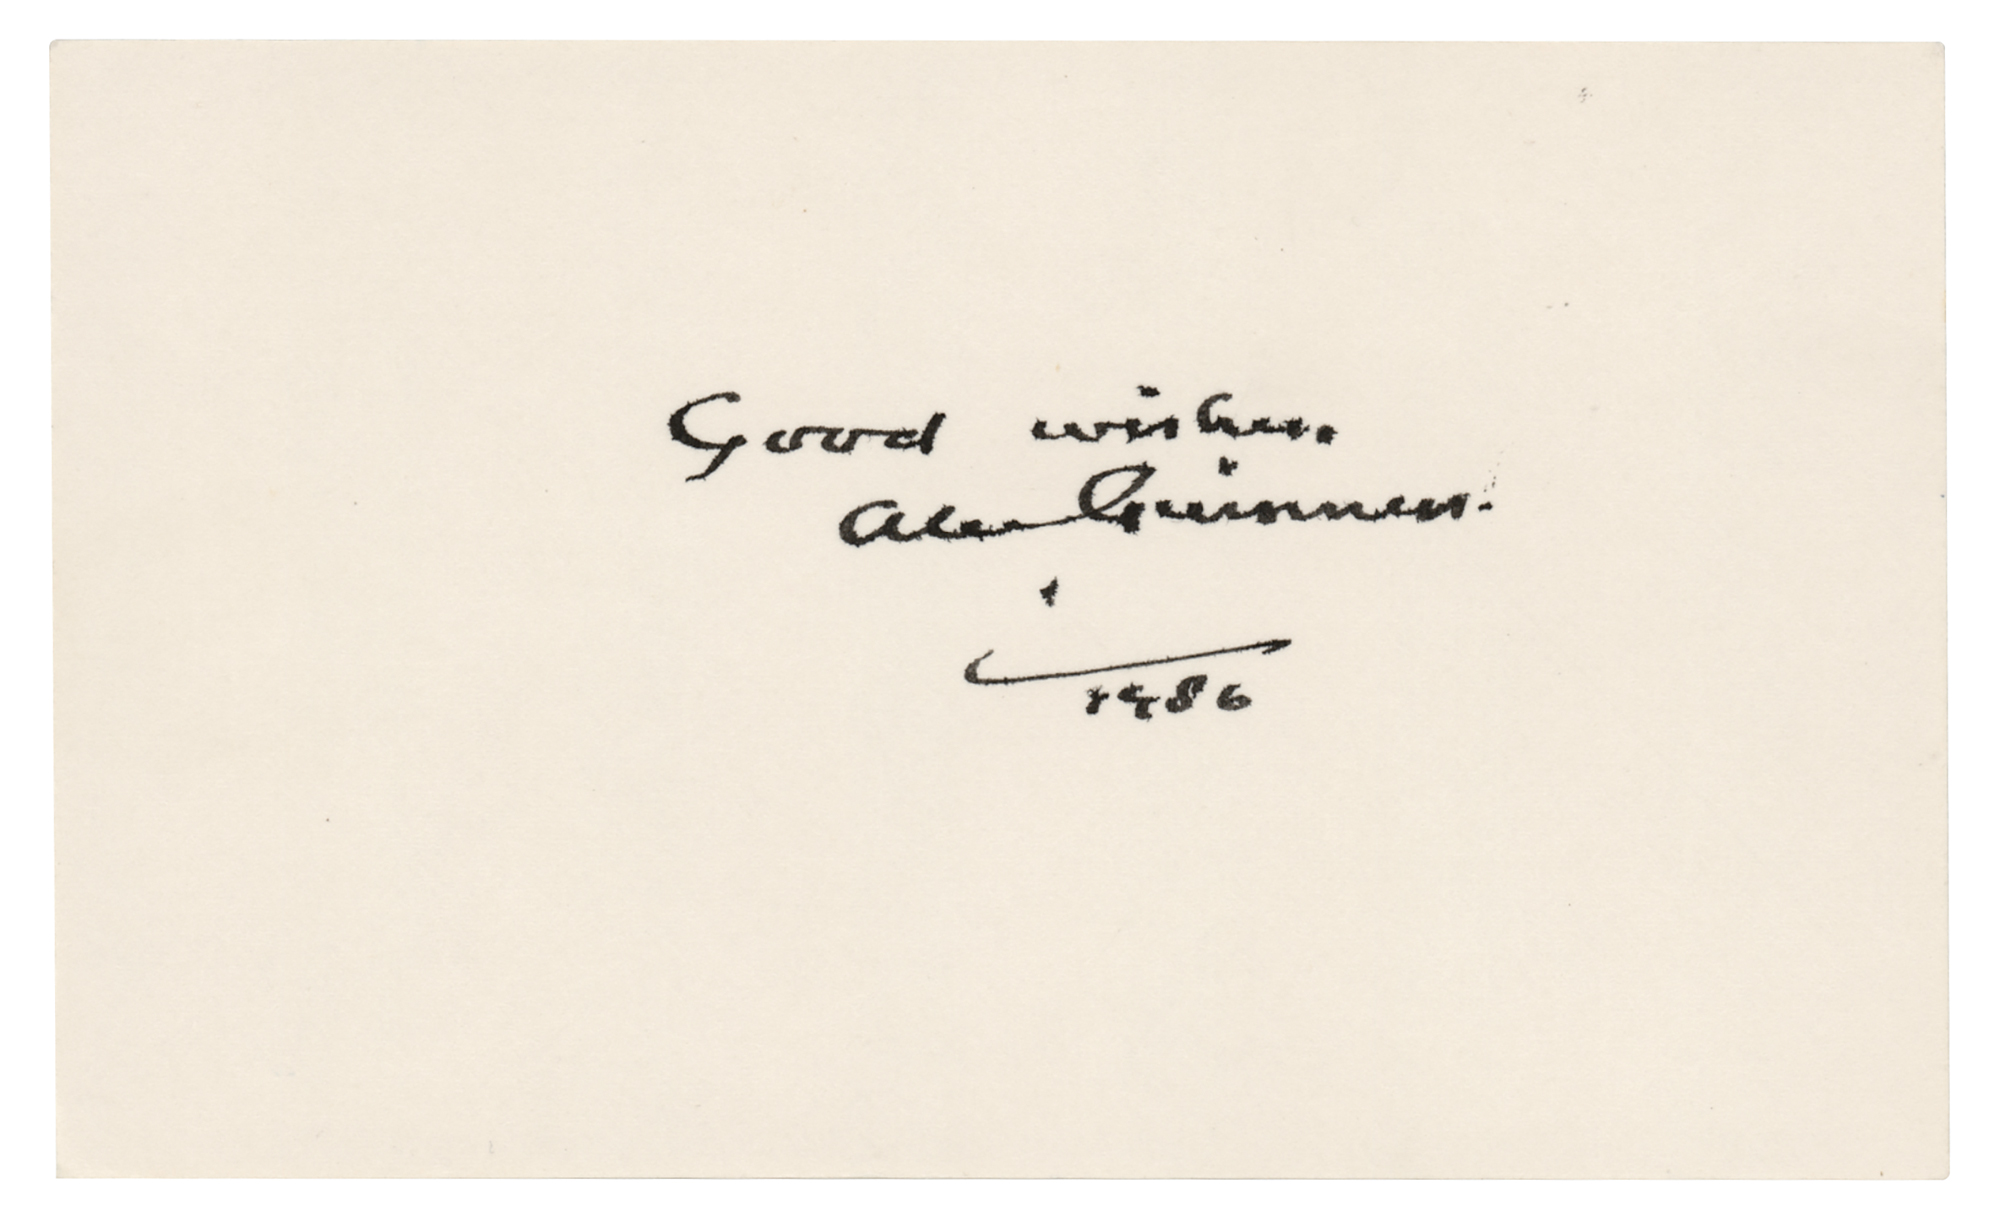 Good wishes.
Alec Guinness.
1986